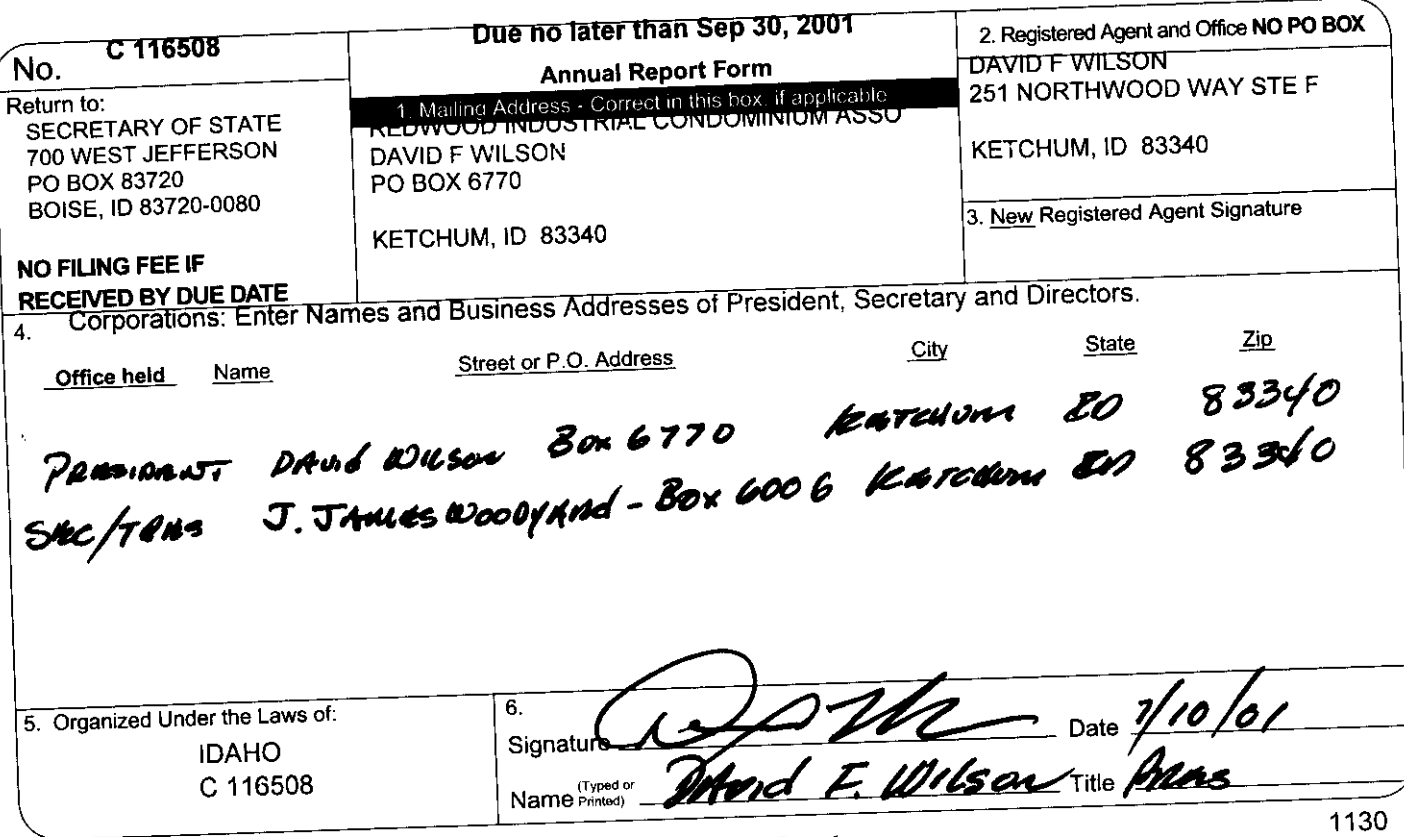 No. C 116508
Return to:
SECRETARY OF STATE
700 WEST JEFFERSON
PO BOX 83720
BOISE, ID 83720-0080
NO FILING FEE IF
RECEIVED BY DUE DATE
Due no later than Sep 30, 2001
Annual Report Form
1. Mailing Address - Correct in this box, if applicable
REDWOOD INDUSTRIAL CONDOMINIUM ASSO
DAVID F WILSON
PO BOX 6770
KETCHUM, ID 83340
2. Registered Agent and Office NO PO BOX
DAVID F WILSON
251 NORTHWOOD WAY STE F
KETCHUM, ID 83340
3. New Registered Agent Signature
4. Corporations: Enter Names and Business Addresses of President, Secretary and Directors.
Office held Name Street or P.O. Address City State Zip
PRESIDENT DAVID WILSON Box 6770 KETCHUM ID 83340
SEC/TRES J. JAMES WOODYARD - BOX 6006 KETCHUM ID 83340
5. Organized Under the Laws of:
IDAHO
C 116508
6.
Signature Date 7/10/01
Name (Typed or Printed) DAVID F. WILSON Title PRES
1130